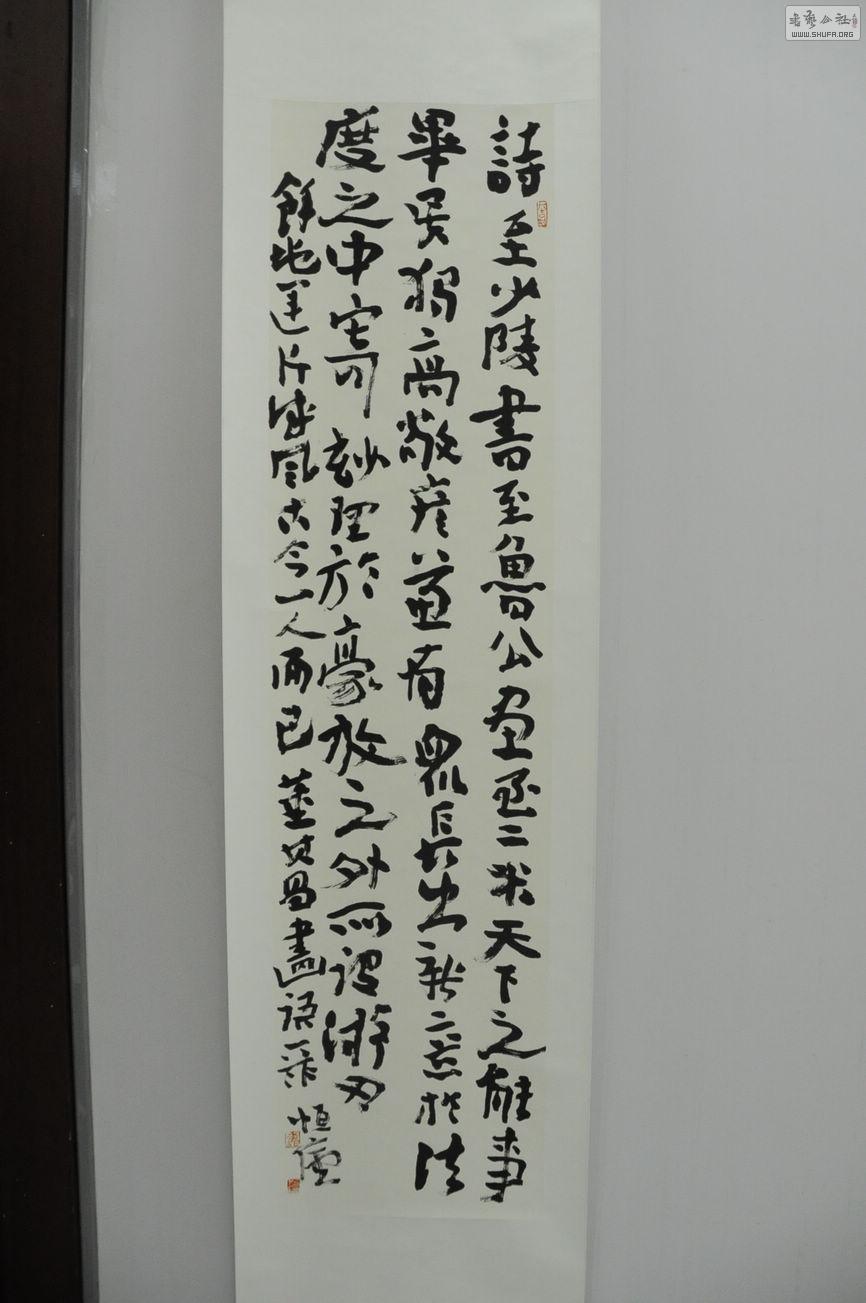 詩至少陵書至魯公畫至二米天下之能事
畢矣獨高敬彥兼有眾長出新意於法
度之中寄玅理於豪放之外所謂游刃
餘地運斤成風古今一人而已 董其昌畫語一 恒
書藝公社
WWW.SHUFA.ORG